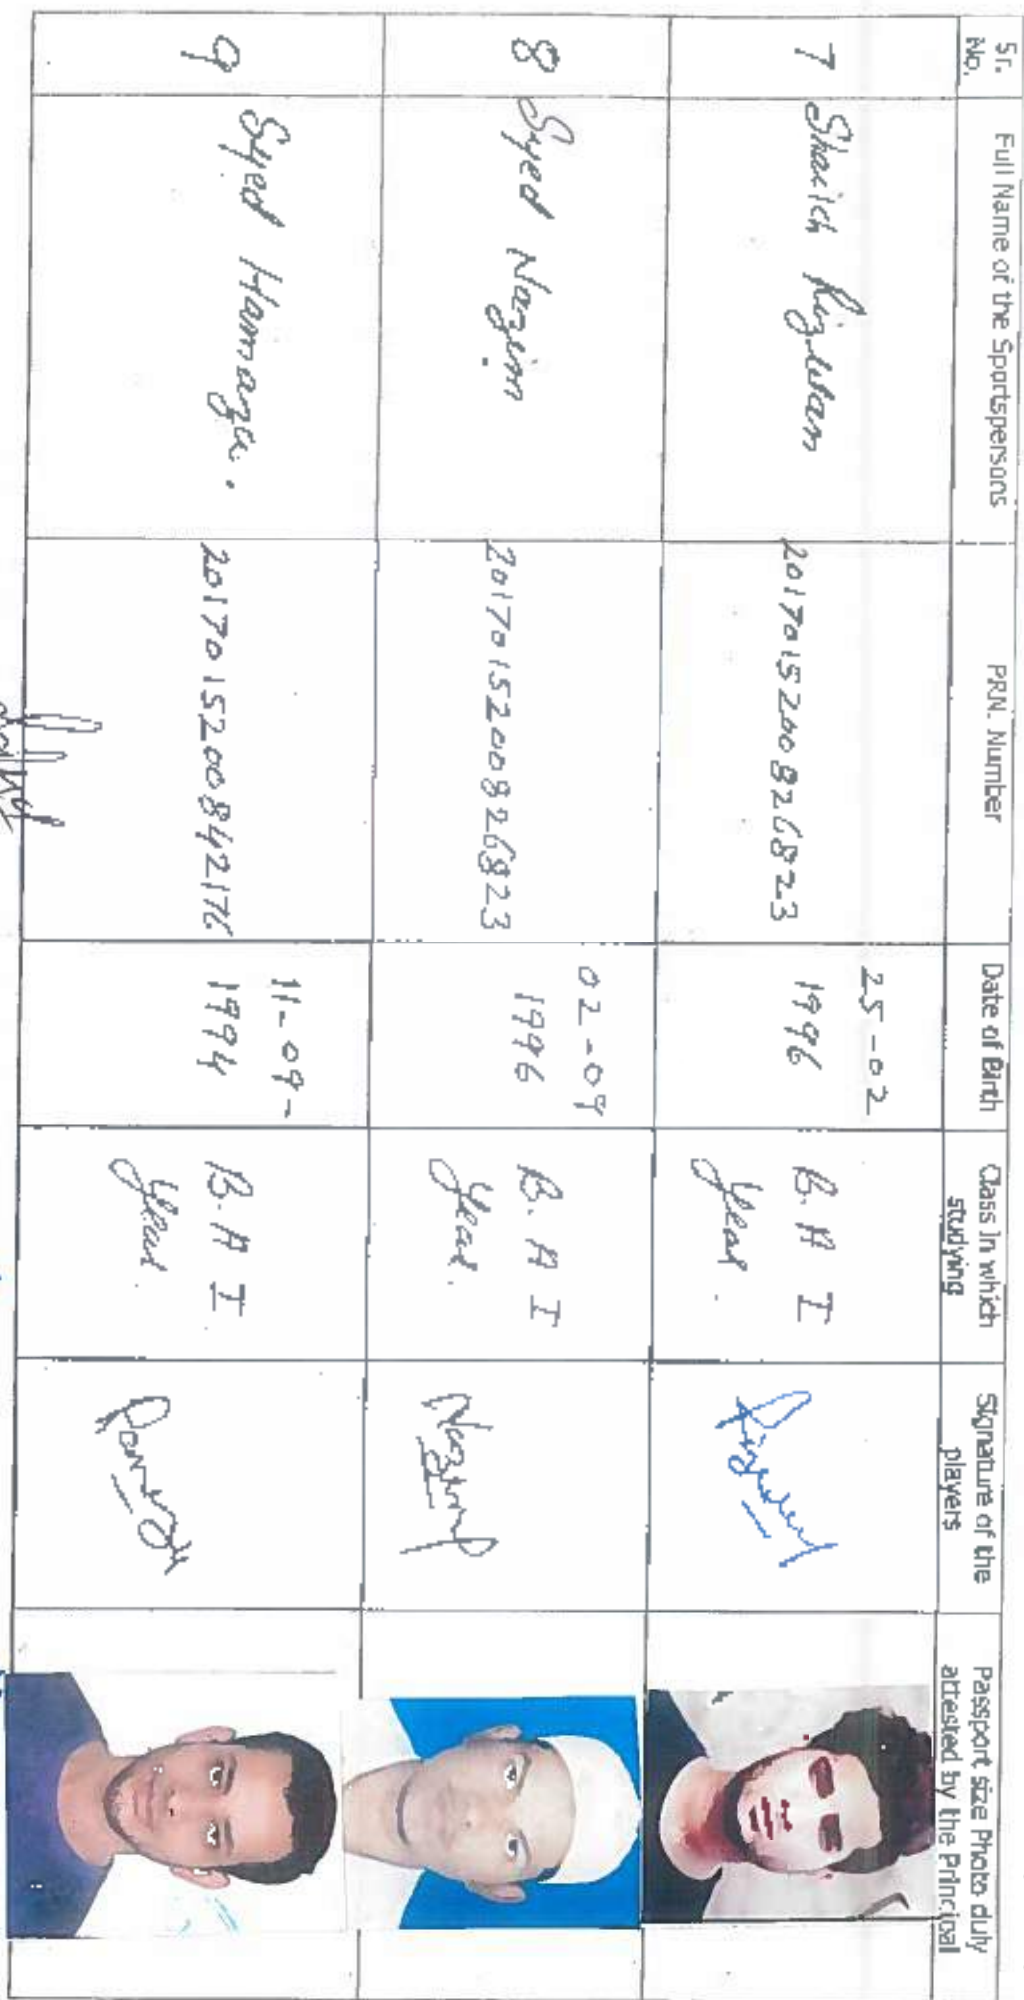 Sr. No.
Full Name of the Sportspersons
PRN. Number
Date of Birth
Class in which studying
Signature of the players
Passport size Photo duly attested by the Principal
7
Shaikh Rizwan
2017015200826823
25-02
1996
B.A I
Year.
8
Syed Nazim
2017015200826823
02-09
1996
B.A I
Year.
Nazim
9
Syed Hamaza.
2017015200842176
11-09-
1994
B.A I
Year